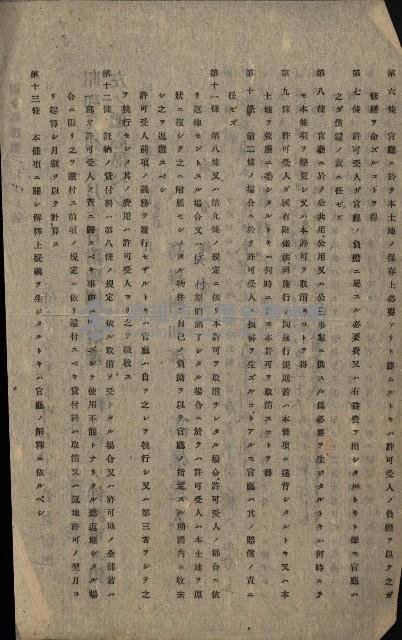 第六條 官廳ニ於テ本土地ノ保存上必要アリト認ムルトキハ許可受人ノ負擔ヲ以テ之ガ
修繕ヲ命ズルコトヲ得
第七條 許可受人ガ官廳ノ負擔ニ屬スル必要費又ハ有益費ヲ出シタルトキト雖モ官廳ハ
之ガ償還ノ責ニ任ゼズ
第八條 官廳ニ於テ公共用公用又ハ公益事業ニ供スル爲必要ヲ生ジタルトキハ何時ニテ
モ本條項ヲ變更シ又ハ本許可ヲ取消スコトヲ得
第九條 許可受人ガ國有財產法同施行令同施行規則若ハ本條項ニ違背シタルトキ又ハ本
土地ヲ荒廢ニ委シタルトキハ何時ニテモ本許可ヲ取消スコトヲ得
第十條 前二條ノ場合ニ於テ許可受人ニ損害ヲ生ズルコトアルモ官廳ハ其ノ賠償ノ責ニ
任ゼズ
第十一條 第八條又ハ第九條ノ規定ニ依リ本許可ヲ取消サレタル場合、許可受人ノ都合ニ依
リ返地セントスル場合又ハ貸付期間滿了シタル場合ニ於テハ許可受人ハ本土地ヲ原
狀ニ復シ之ニ附屬セシメタル物件ヲ自己ノ負擔ヲ以テ官廳ノ指定スル期間內ニ收去
シ之ヲ返還スベシ
許可受人前項ノ義務ヲ履行セザルトキハ官廳ハ自ラ之レヲ執行シ又ハ第三者ヲシテ之
ヲ執行セシメ其ノ費用ハ許可受人ヨリ之ヲ徵收ス
第十二條 旣納ノ貸付料ハ第八條ノ規定ニ依ル取消ヲ受ケタル場合又ハ許可地ノ全部若ハ
一部ガ許可受人ノ責ニ歸スベキ事由ニ使用不能トナリタル爲返地シタル場
合ニ限リ之ヲ還付ス前項ノ規定ニ依リ還付スベキ貸付料ハ取消又ハ返地許可ノ翌月ヨ
リ起算シ月割ヲ以テ計算ス
第十三條 本條項ニ關シ解釋上疑義ヲ生ジタルトキハ官廳ノ解釋ニ依ルベシ